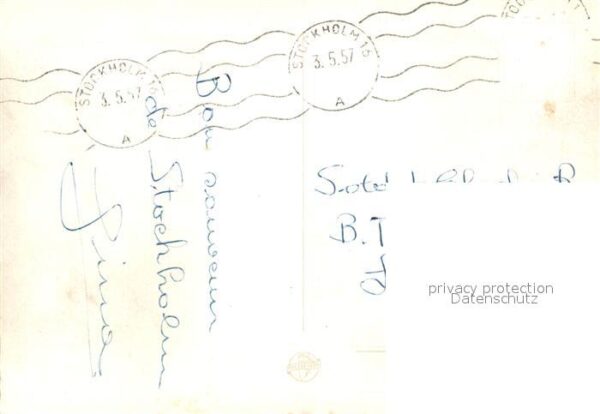 STOCKHOLM 16
3.5.57
A
STOCKHOLM 16
3.5.57
A
STOCKHOLM
Bon souvenir
de Stockholm
B.T
privacy protection
Datenschutz